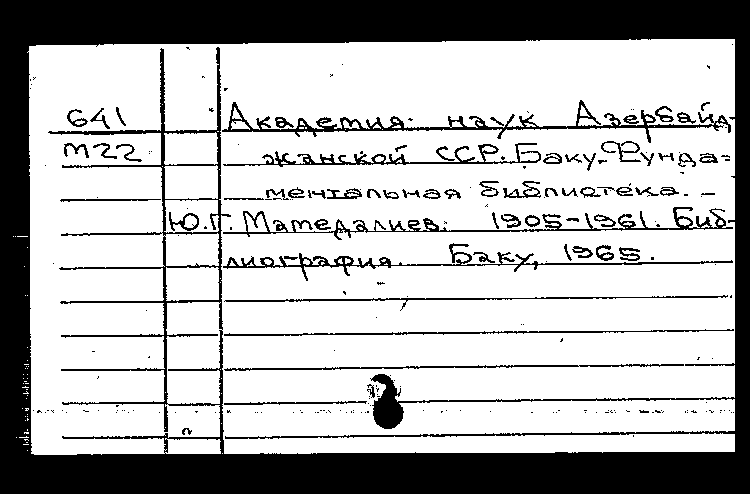 641 Академия наук Азербайд-
м22 жанской ССР. Баку. Фунда-
ментальная библиотека. –
Ю.Г. Мамедалиев: 1905-1961. Биб-
лиография. Баку, 1965.